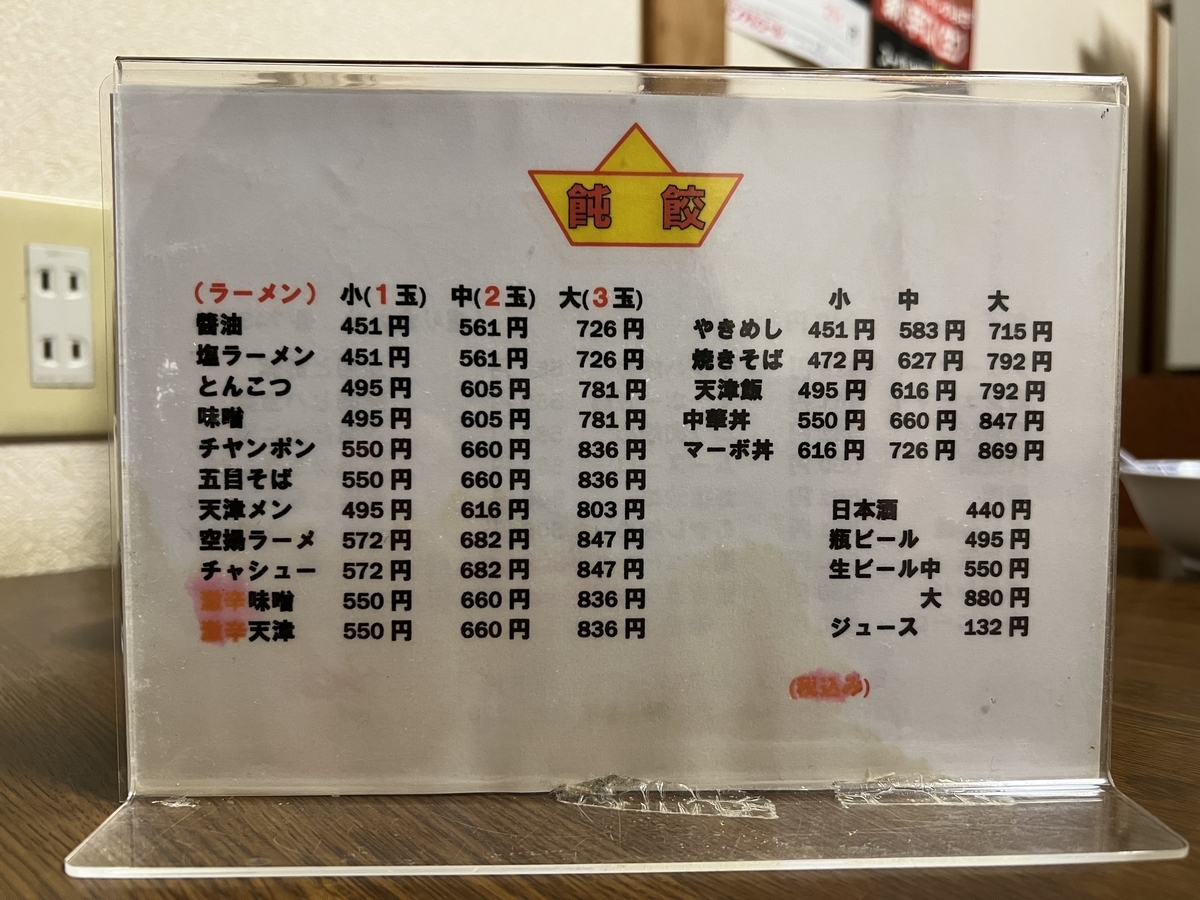 飩 餃
(ラーメン) 小(1玉) 中(2玉) 大(3玉)
醬油 451円 561円 726円
塩ラーメン 451円 561円 726円
とんこつ 495円 605円 781円
味噌 495円 605円 781円
チヤンポン 550円 660円 836円
五目そば 550円 660円 836円
天津メン 495円 616円 803円
空揚ラーメ 572円 682円 847円
チャシュー 572円 682円 847円
激辛味噌 550円 660円 836円
激辛天津 550円 660円 836円
小 中 大
やきめし 451円 583円 715円
焼きそば 472円 627円 792円
天津飯 495円 616円 792円
中華丼 550円 660円 847円
マーボ丼 616円 726円 869円
日本酒 440円
瓶ビール 495円
生ビール中 550円
大 880円
ジュース 132円
(税込み)